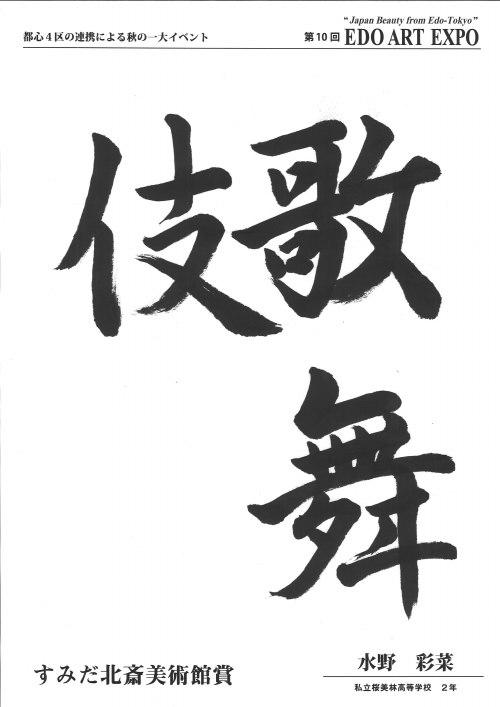 都心4区の連携による秋の一大イベント
"Japan Beauty from Edo-Tokyo"
第10回 EDO ART EXPO
歌舞
伎
すみだ北斎美術館賞
水野 彩菜
私立桜美林高等学校 2年